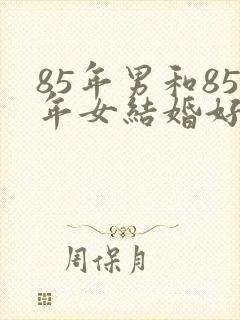 85年男和85
年女結婚好
周保月